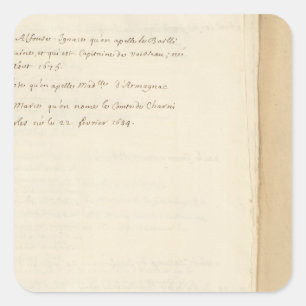 Alfonse Ignace qu'on apelle le Bailli
aine, et qui est Capitaine de vaisseau; né
Aout 1675.
qu'on apelles Mad.lles d'Armagnac
Marie qu'on nomes le Comte de Charni
né le 22 février 1684.